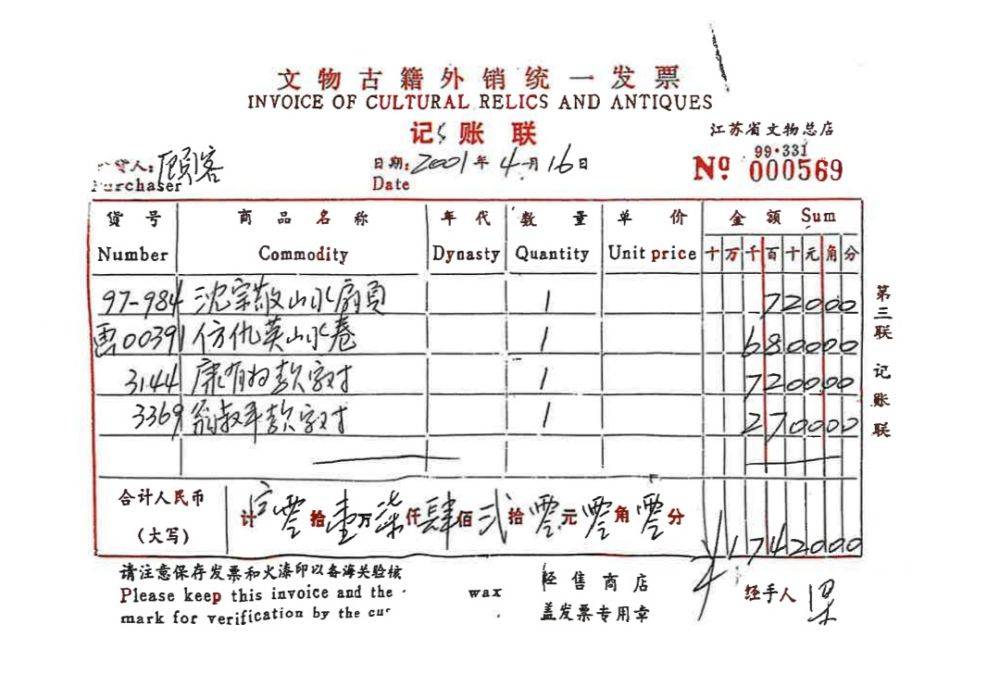 文物古籍外销统一发票
INVOICE OF CULTURAL RELICS AND ANTIQUES
记账联
江苏省文物总店
99·331
Nº 000569
货人：顾客
Purchaser
日期：2001年4月16日
Date
货号 商品名称 年代 数量 单价 金额 Sum
Number Commodity Dynasty Quantity Unit price 十万千百十元角分
97-984 沈宗敬山水扇页 1 72000
画00391 仿仇英山水卷 1 680000
3144 康有为款字对 1 720000
3369 翁叔平款字对 1 270000
合计人民币
（大写）
计 零拾壹万柒仟肆佰贰拾零元零角零分 ¥1742000
请注意保存发票和火漆印以备海关验核
Please keep this invoice and the wax
mark for verification by the cus
经售商店
盖发票专用章
经手人
第三联 记账联